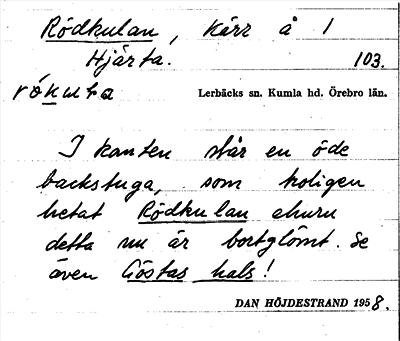 Rödkulan, Kärr å 1
Hjärta. 103.
rókuba Lerbäcks sn. Kumla hd. Örebro län.
I kanten står en öde
backstuga, som troligen
hetat Rödkulan ehuru
detta nu är bortglömt. Se
även Göstas hals!
DAN HÖJDESTRAND 1958.